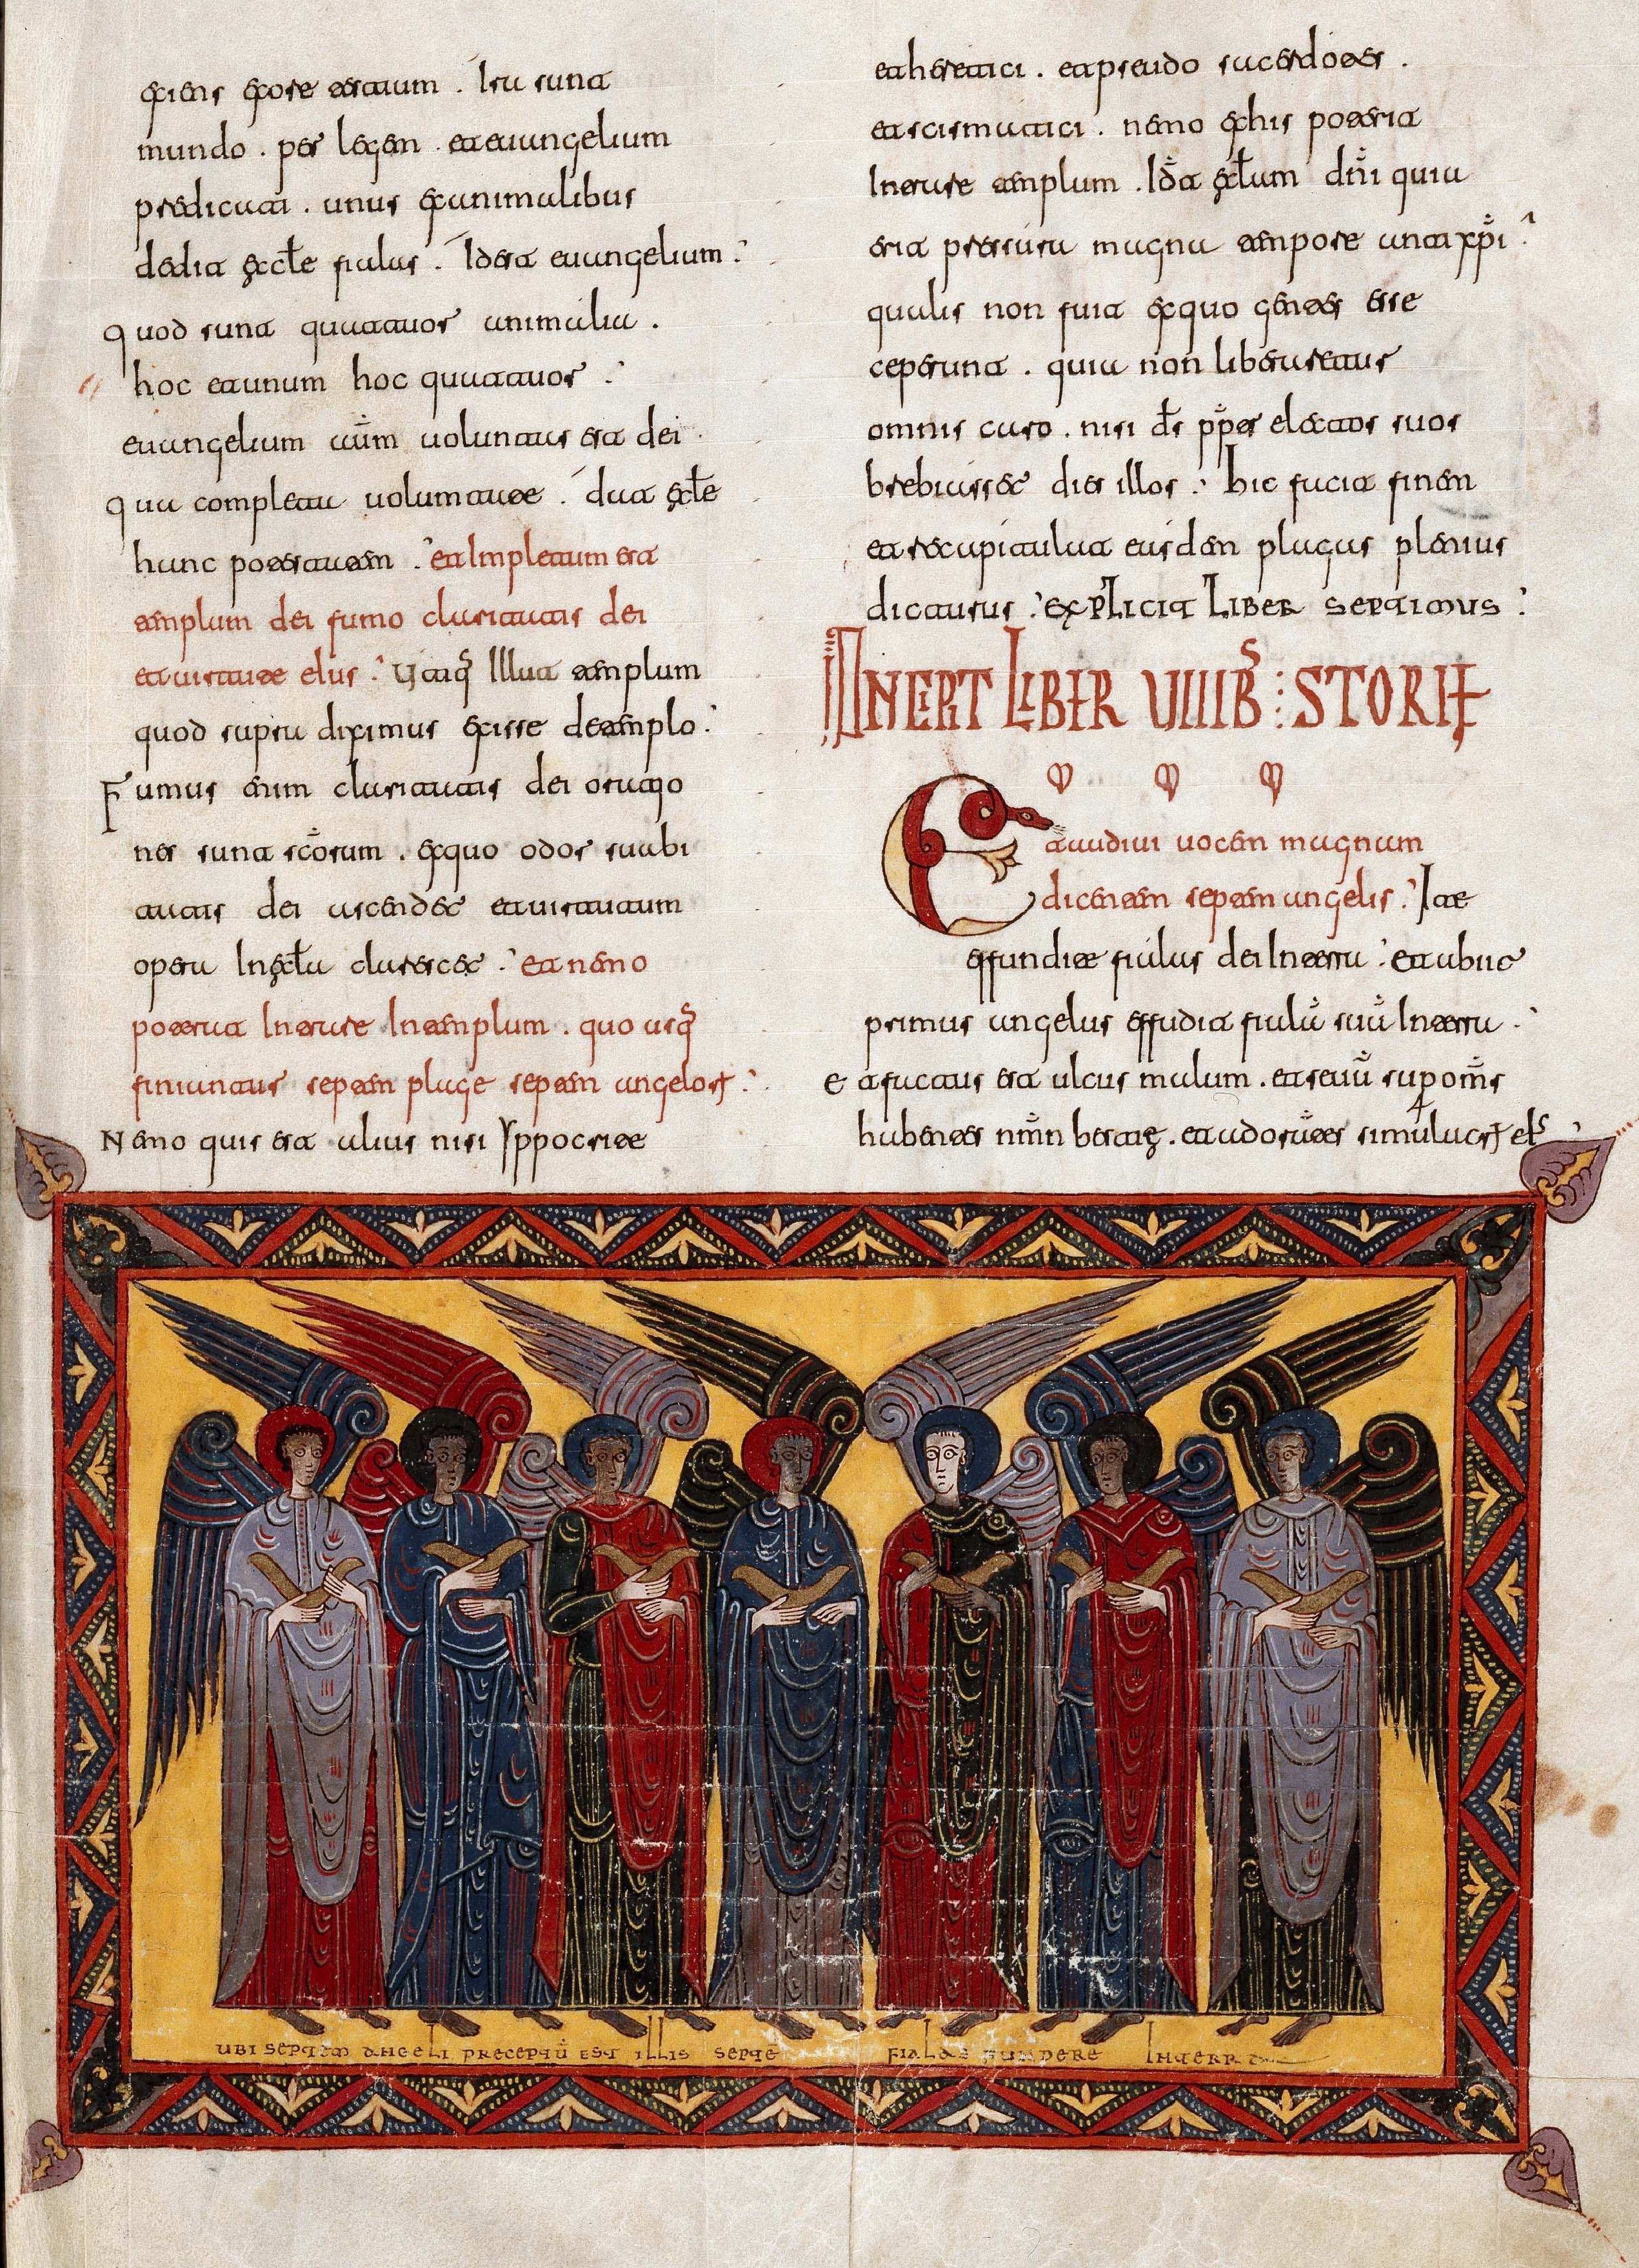 exiens exore testium . Isa sunt
mundo . per legem . et euangelium
predicat . unus exanimalibus
dedit ęccłe fialas . Idest euangelium :
quod sunt quattuor animalia .
hoc etunum hoc quattuor :
euangelium aum uoluntas est dei .
qua completa uolumtate . dat ęcłe
hanc potestatem . et Impletum est
templum dei fumo claritatis dei
et uirtute eius : Utiq; Illut templum
quod supra diximus exisse detemplo :
Fumus enim claritatis dei oratio
nes sunt scorum . exquo odor suabi
tatis dei ascendet et uirtutum
opera Inęcła clarescet : et nemo
poterat Intrare Intemplum . quo usq;
finiuntur septem plage septem angelorum :
Nemo quis est alius nisi Yppocrite
et heretici . et pseudo sacerdotes .
et scismatici . nemo exhis poterit
Intrare templum . Idt ęcłam dni quia
erit pressura magna tempore antixpi :
qualis non fuit exquo gentes esse
ceperunt . quia non liberaretur
omnis caro . nisi ds ppter electos suos
brebiasset dies illos : hic facit finem
et recapitulat eisdem plagas plenius
dicturus : EXPLICIT LIBER SEPTIMUS :
INCIPIT LIBER VIIIBS : STORIE
Et audiui uocem magnam
dicentem septem angelis : Ite
effundite fialas dei Interra : et abiit
primus angelus effudit fialā suā Interra :
et factus est ulcus malum . et seuū sup oms
habentes nmn bestię . et adorātes simulacrum eis :
UBI SEPTEM ANGELI PRECEPTŪ EST ILLIS SEPTE FIALAS FUNDERE INTERRA